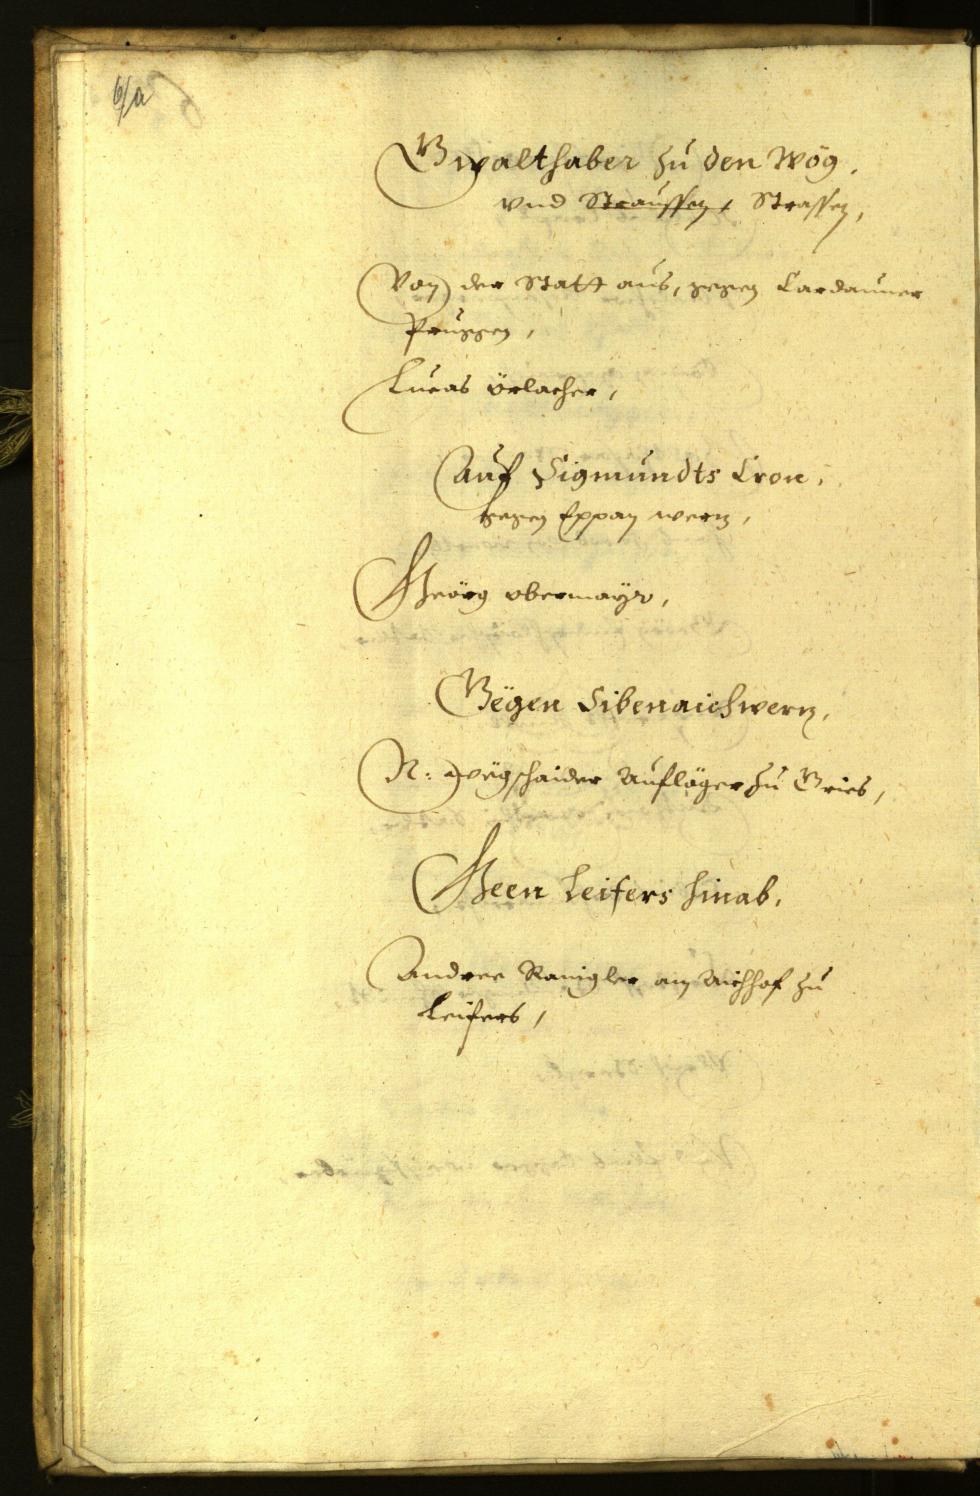 6/a
Gwalthaber zu den Wög,
vnd Straussen, Strassen,
Von der Statt aus, gegen Cardauner
Pruggen,
Lucas Örlacher,
Auf Sigmundts Cron,
gegen Eppan wertz,
Geörg Obermayr,
Gëgen Sibenaichwertz,
N: Wëgschaider Aufläger zu Gries,
Geen Leifers hinab,
Andree Ranigler am Aichhof zu
Leifers,